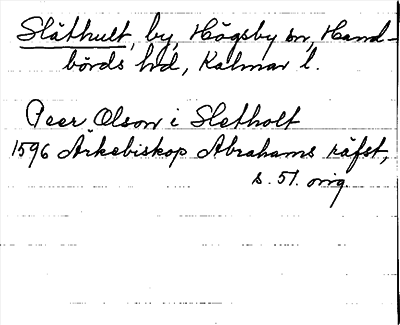 Slåthult, by, Högsby sn, Hand-
börds hd, Kalmar l.
Peer Olson i Sletholt
1596 Ärkebiskop Abrahams räfst,
s. 51. orig.